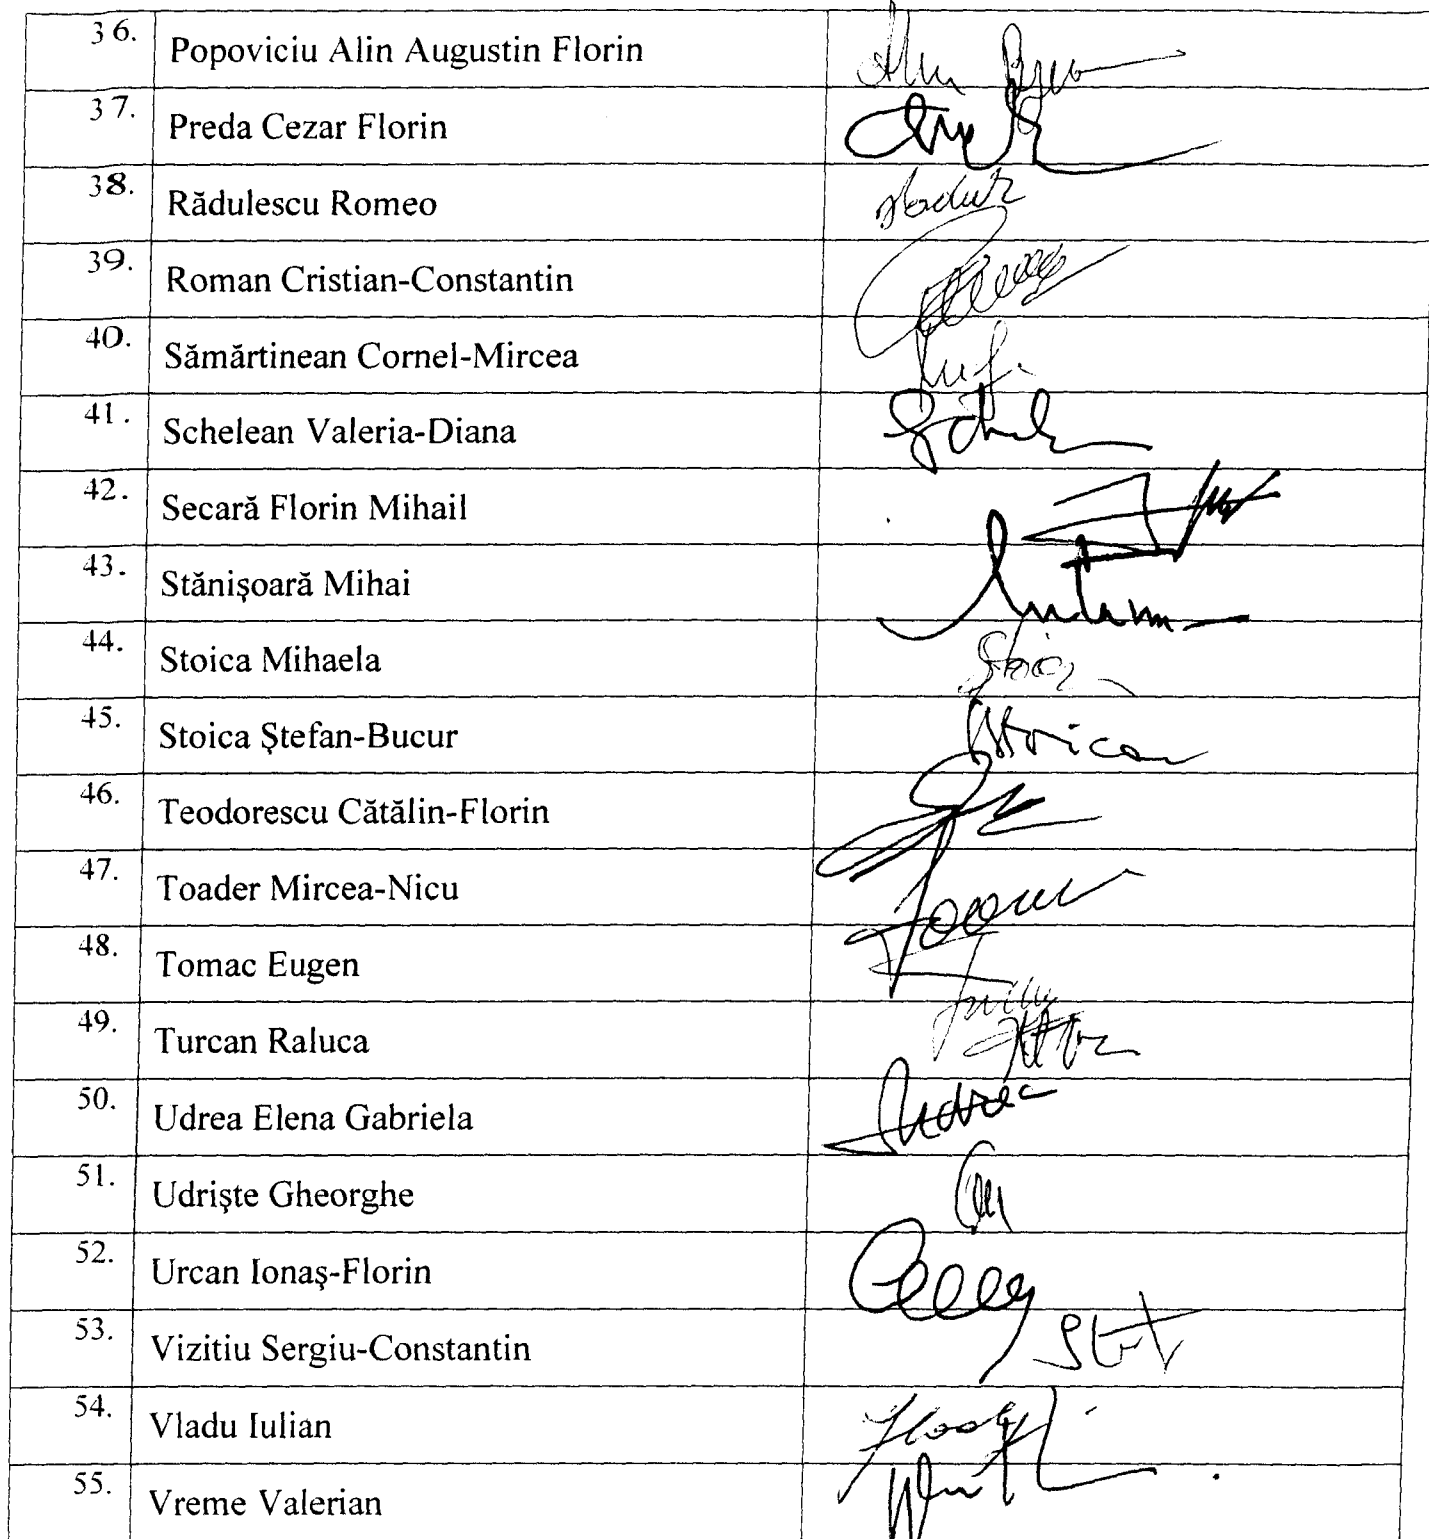 36. Popoviciu Alin Augustin Florin
37. Preda Cezar Florin
38. Rădulescu Romeo
39. Roman Cristian-Constantin
40. Sămărtinean Cornel-Mircea
41. Schelean Valeria-Diana
42. Secară Florin Mihail
43. Stănişoară Mihai
44. Stoica Mihaela
45. Stoica Ştefan-Bucur
46. Teodorescu Cătălin-Florin
47. Toader Mircea-Nicu
48. Tomac Eugen
49. Turcan Raluca
50. Udrea Elena Gabriela
51. Udrişte Gheorghe
52. Urcan Ionaş-Florin
53. Vizitiu Sergiu-Constantin
54. Vladu Iulian
55. Vreme Valerian